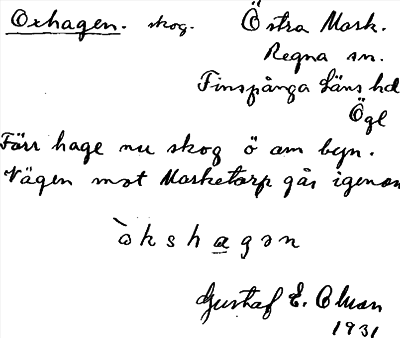 Oxhagen. skog. Östra Mark.
Regna sn.
Finspånga läns hd
Ögl
Förr hage nu skog ö om byn.
Vägen mot Marketorp går igenom
òkshagən
Gustaf E. Olman
1931